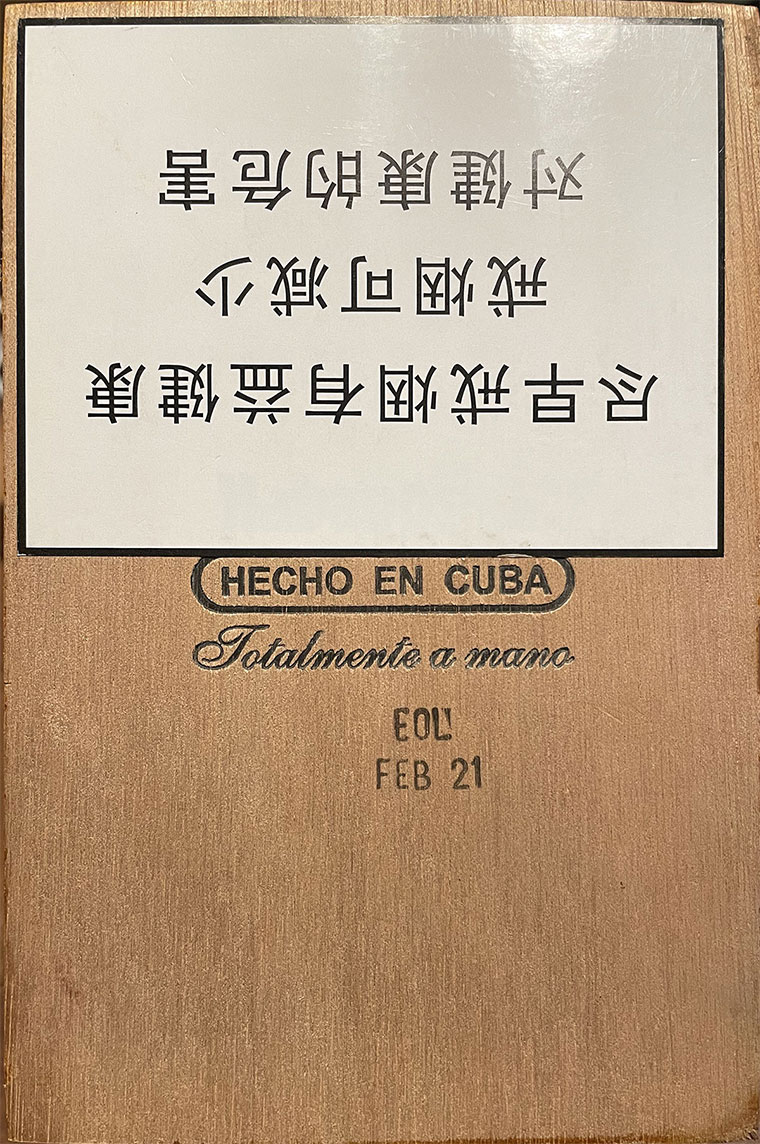 尽早戒烟有益健康
戒烟可减少
对健康的危害
HECHO EN CUBA
Totalmente a mano
FEB 21